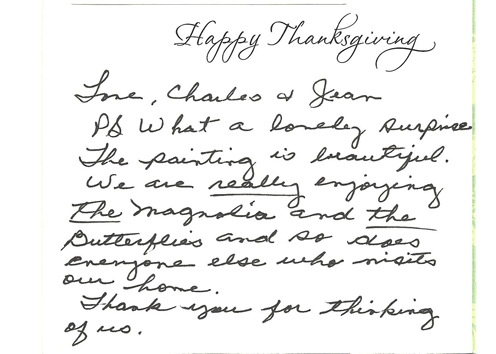 Happy Thanksgiving
Love, Charles & Jean
PS What a lovely surprise
The painting is beautiful.
We are really enjoying
the Magnolia and the
Butterflies and so does
everyone else who visits
our home.
Thank you for thinking
of us.